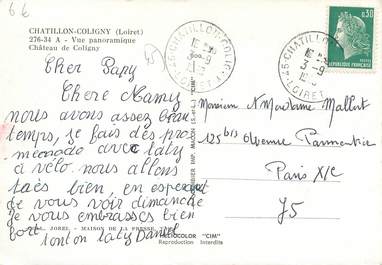 66
CHATILLON-COLIGNY (Loiret)
276-34 A - Vue panoramique
Château de Coligny
Cher Papy
Chere Mamy
nous avons assez beau
temps, je fais des pro
menade avec taty
a velo. nous allons
taès bien, en esperent
de vous voir dimanche
Je vous embrasses bien
fort
tonton taty Daniel
JOREL - MAISON DE LA PRESSE
HELIOCOLOR "CIM"
Reproduction Interdite
COMBIER IMP. MACON (S.-et-L.) "CIM"
45 CHATILLON-COLIGNY
LOIRET
45 CHATILLON
LOIRET
0,30
REPUBLIQUE FRANÇAISE
Monsieur et Mesdame Mallet
125 bis Avenue Parmentier
Paris XIe
75